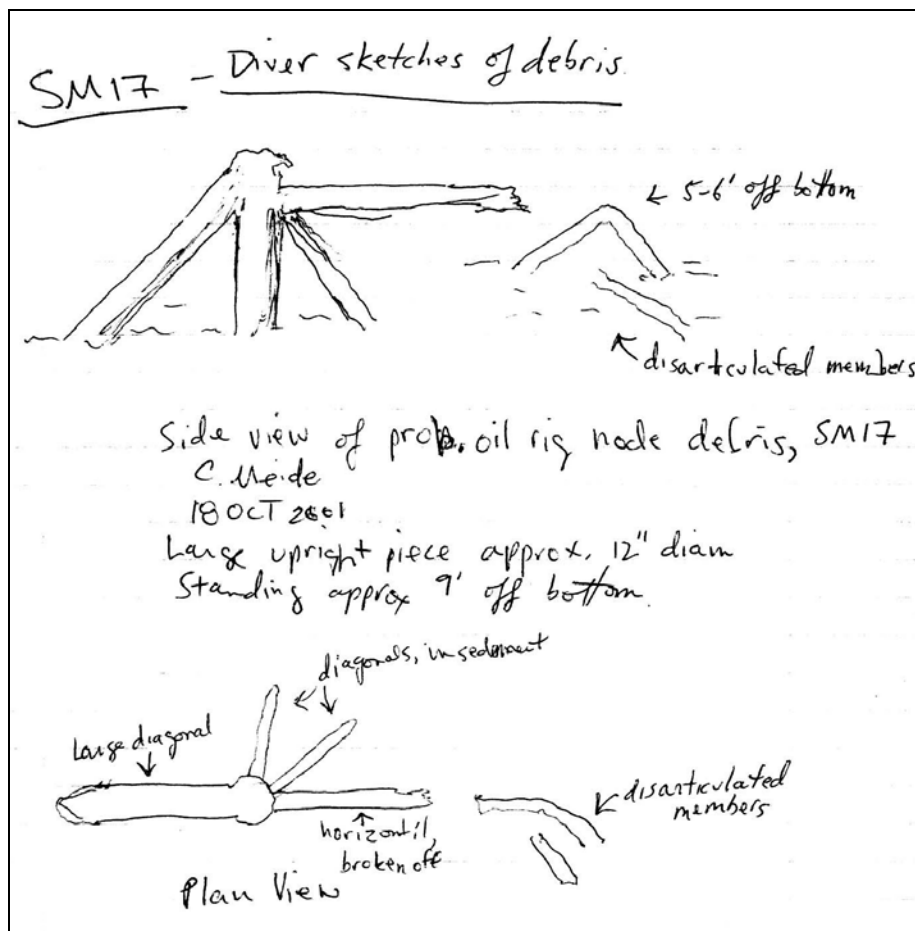 SM17 - Diver sketches of debris.
← 5-6' off bottom
disarticulated members
Side view of prob. oil rig node debris, SM17
C. Meide
18 OCT 2001
Large upright piece approx. 12" diam
Standing approx 9' off bottom.
diagonals, in sediment
Large diagonal
disarticulated
members
horizontil,
broken off
Plan View